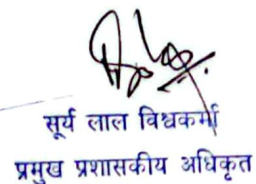 सूर्य लाल विश्वकर्मा
प्रमुख प्रशासकीय अधिकृत